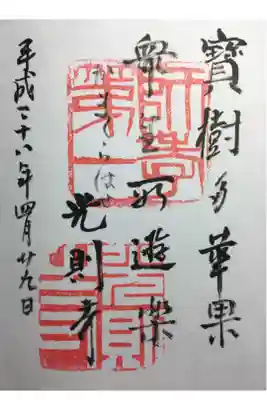 寶樹多華果
衆生所遊樂
光則寺
平成二十八年四月廿九日